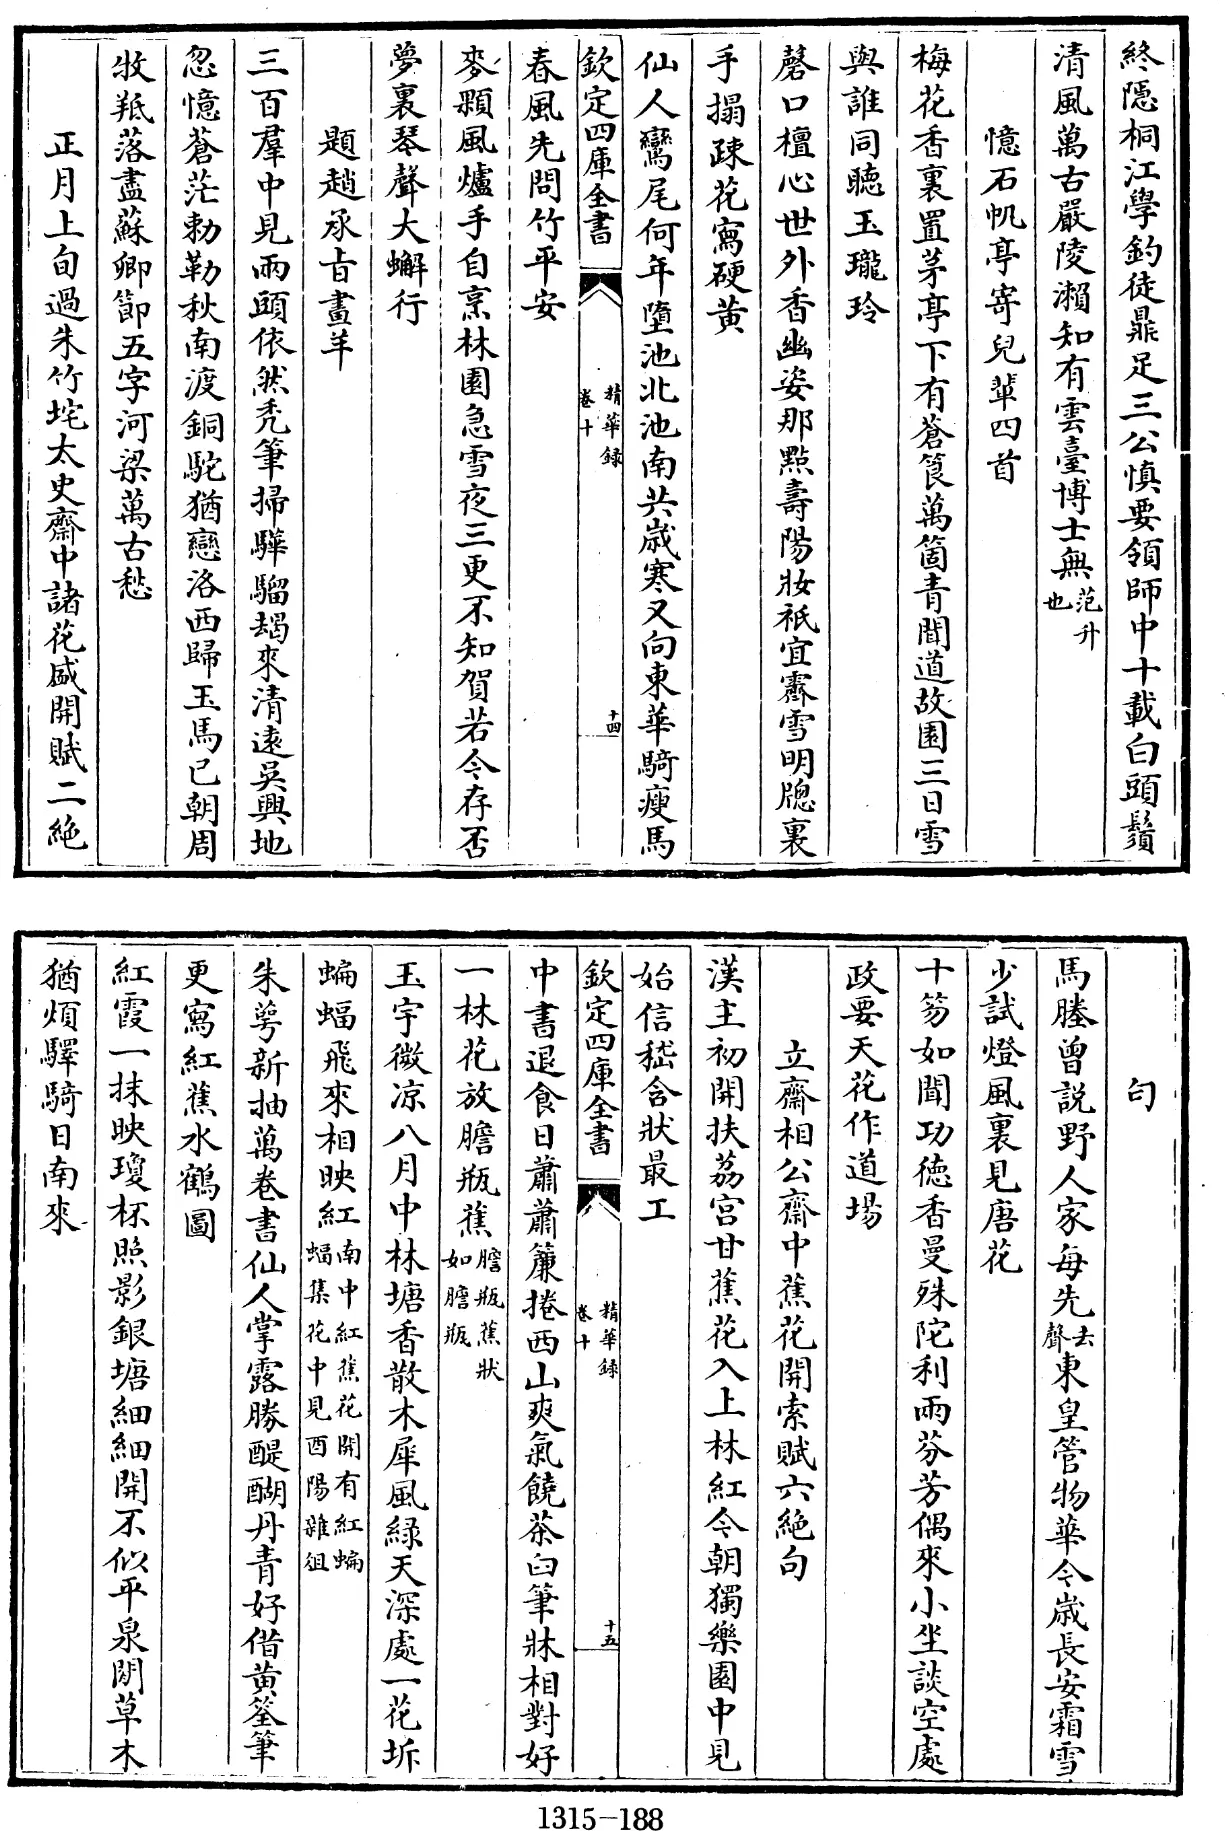 終隱桐江學釣徒鼎足三公慎要領師中十載白頭鬚
清風萬古嚴陵瀨知有雲臺博士無范升也
憶石帆亭寄兒輩四首
梅花香裏置茅亭下有蒼筤萬箇青聞道故園三日雪
與誰同聽玉瓏玲
磬口檀心世外香幽姿那㸃壽陽妝祇宜霽雪明牕裏
手搨疎花寫硬黃
仙人鸞尾何年墮池北池南共歲寒又向東華騎瘦馬
欽定四庫全書
精華錄
卷十
十四
春風先問竹平安
麥顆風爐手自烹林園急雪夜三更不知賀若今存否
夢裏琴聲大蠏行
題趙承旨畫羊
三百羣中見兩頭依然禿筆掃驊騮朅來清遠吳興地
忽憶蒼茫勅勒秋南渡銅駝猶戀洛西歸玉馬已朝周
牧羝落盡蘇卿節五字河梁萬古愁
正月上旬過朱竹垞太史齋中諸花盛開賦二絶
句
馬塍曾説野人家每先去聲東皇管物華今歲長安霜雪
少試燈風裏見唐花
十笏如聞功德香曼殊陀利兩芬芳偶來小坐談空處
政要天花作道場
立齋相公齋中蕉花開索賦六絶句
漢主初開扶荔宮甘蕉花入上林紅今朝獨樂園中見
始信嵇含狀最工
欽定四庫全書
精華錄
卷十
十五
中書退食日蕭蕭簾捲西山爽氣饒茶臼筆牀相對好
一林花放膽瓶蕉膽瓶蕉狀如膽瓶
玉宇微凉八月中林塘香散木犀風緑天深處一花坼
蝙蝠飛來相映紅南中紅蕉花開有紅蝙蝠集花中見酉陽雜俎
朱萼新抽萬卷書仙人掌露勝醍醐丹青好借黃筌筆
更寫紅蕉水鶴圖
紅霞一抹映瓊杯照影銀塘細細開不似平泉閒草木
猶煩驛騎日南來
1315-188